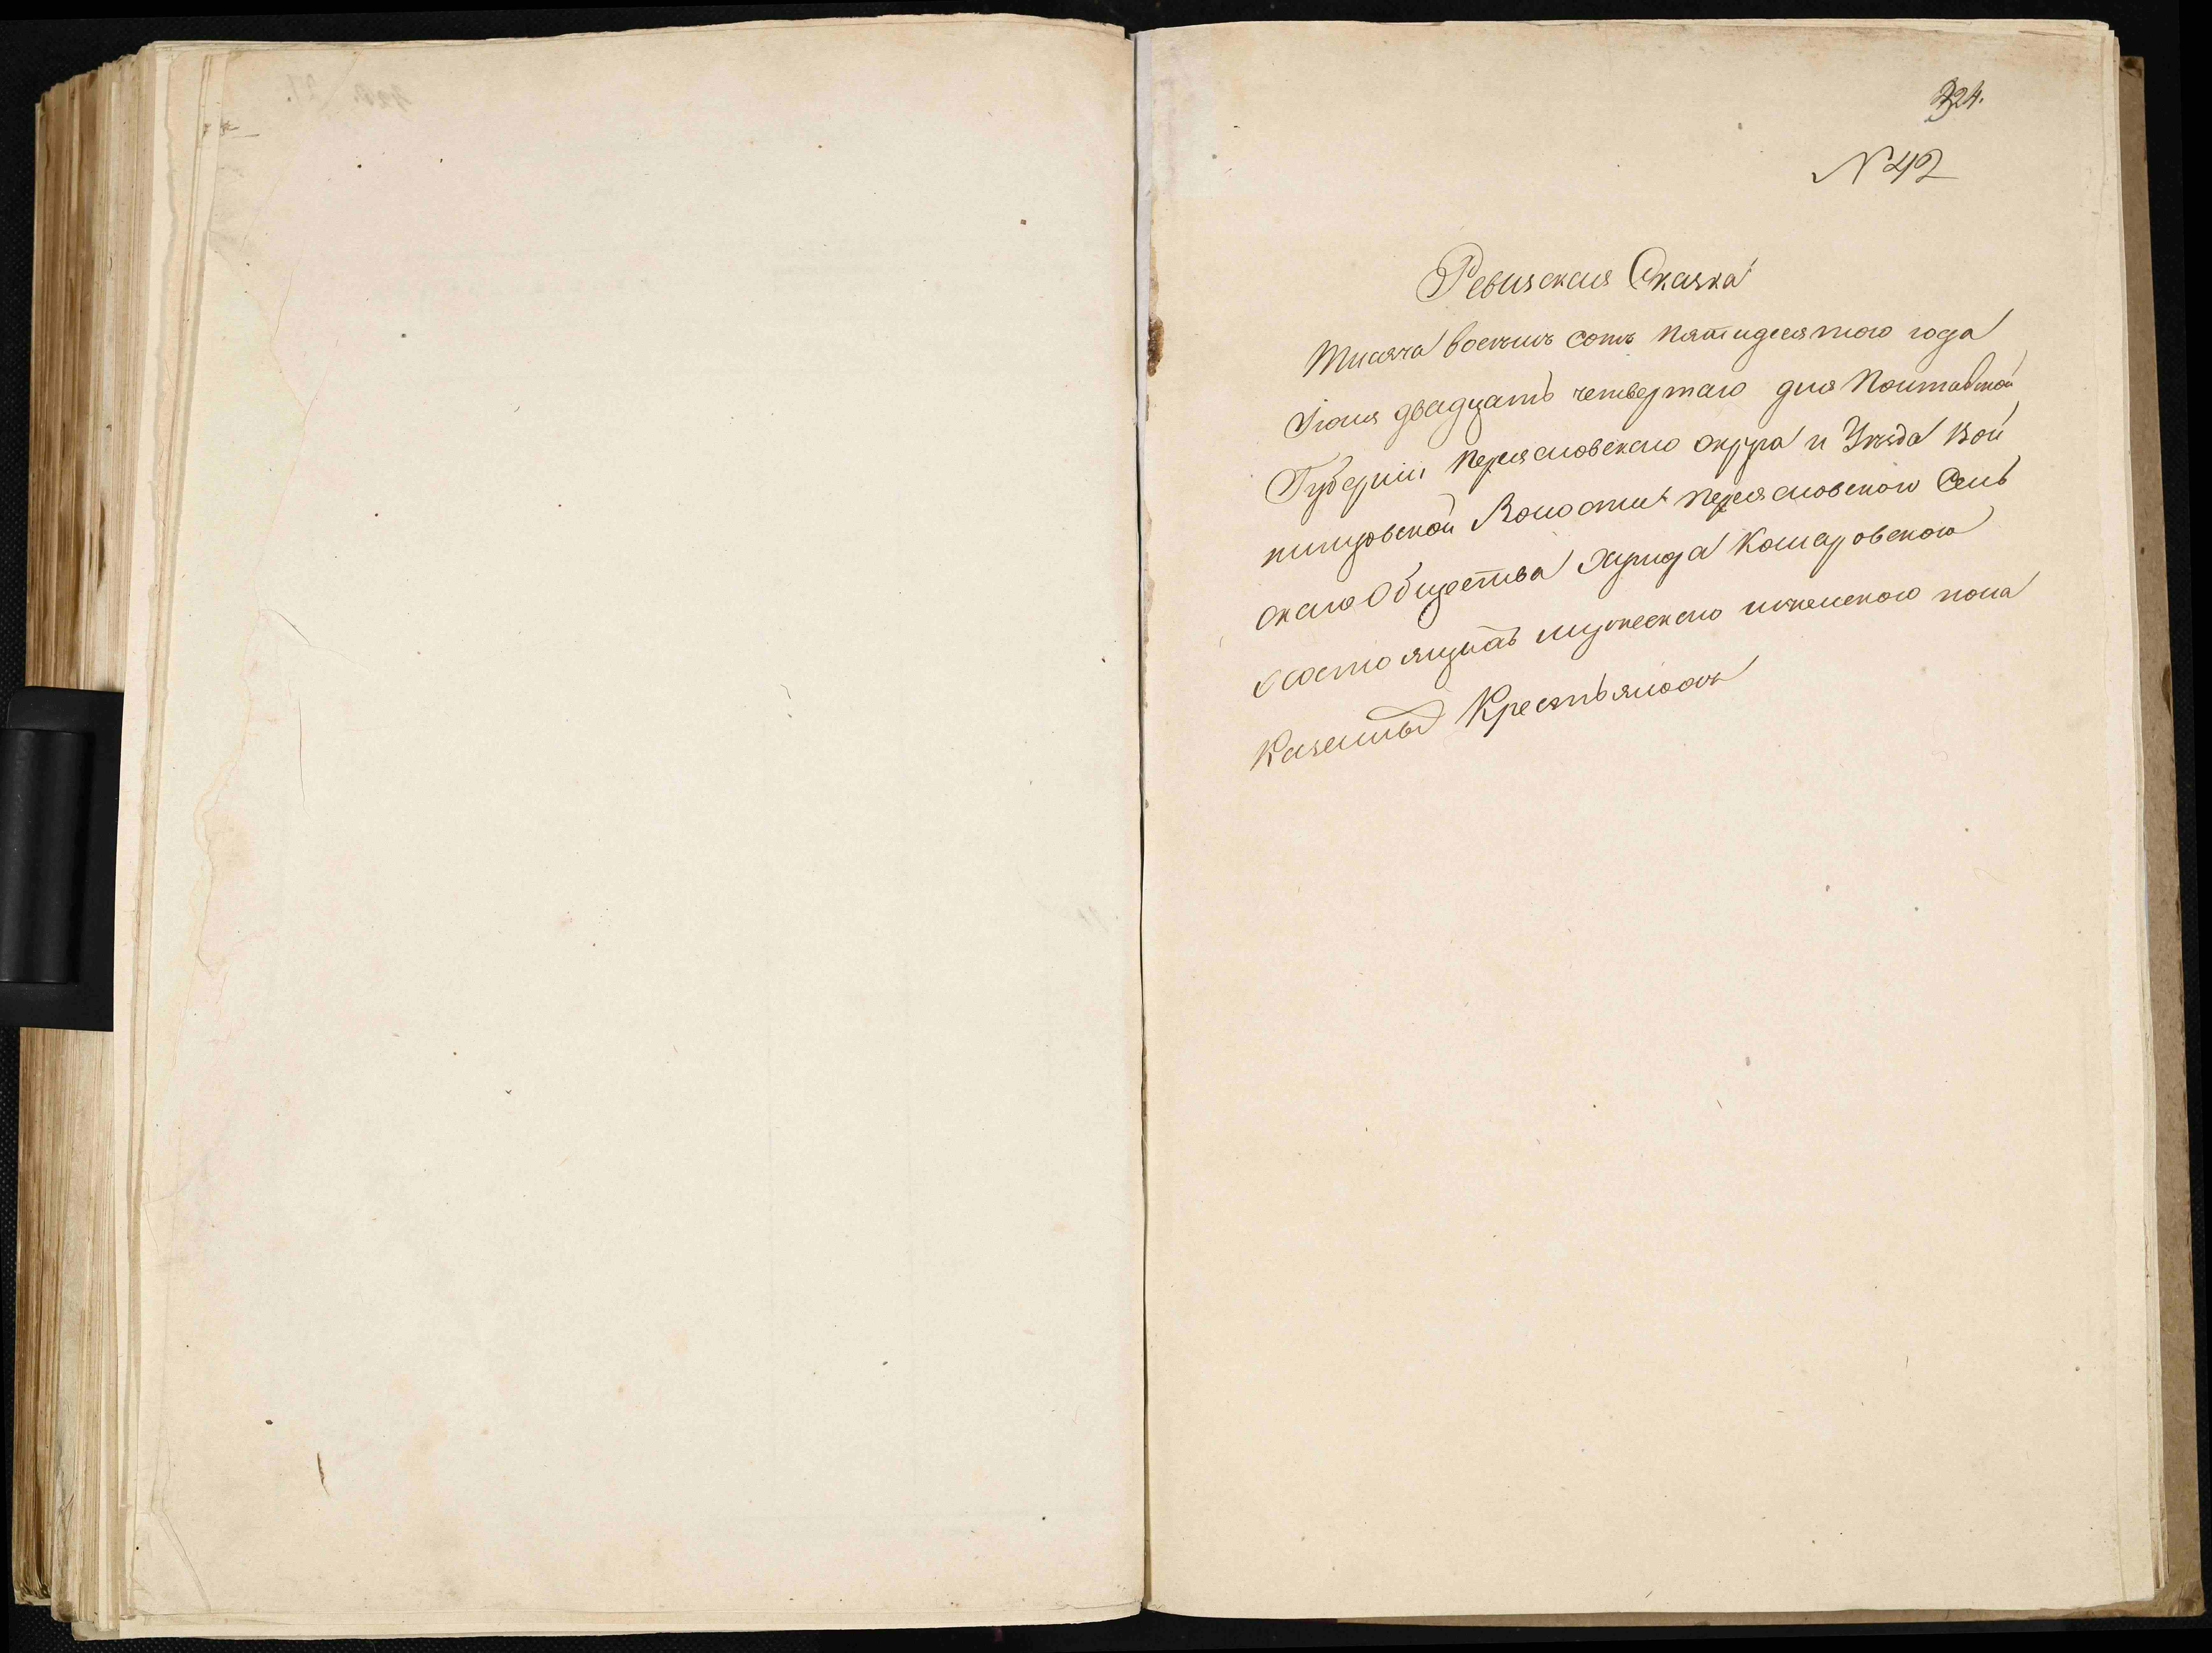 324.
N 42
Ревизская Сказка
Тысяча восемь сотъ пятидесятого года
Іюня двадцать четвертаго дня Полтавской
Губерніи Переясловскаго округа и Уезда Вой
ницовской Волости Переясловского Сель
скаго Общества Хутора Комаровского
о состоящихъ мужескаго и женского пола
Казенныхъ Крестьянохъ